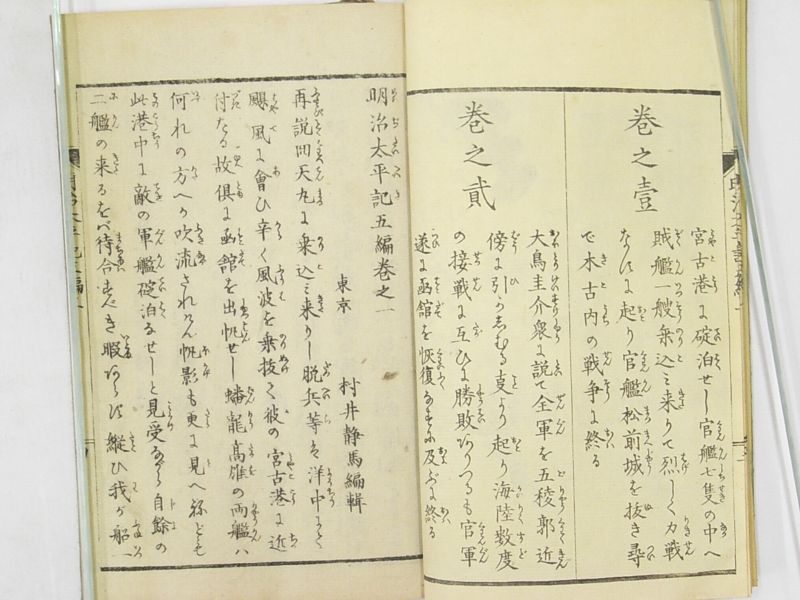 卷之壹
宮古港に碇泊せし官艦七隻の中へ
賊艦一艘乗込み来りて烈しく力戦
なすに起り官艦松前城を抜き尋
で木古内の戦争に終る
卷之貳
大鳥圭介衆に説て全軍を五稜郭近
傍に引
の接戦に互ひに勝敗ありつるも官軍
遂に函館を恢復
明治太平記五編卷之一
東京 村井静馬編輯
再説回天丸に乗込み来りし脱兵等は洋中にて
颶風に會ひ辛く風波を乗抜く彼の宮古港に近
付たる故倶に函館を出帆せし蟠龍高雄の両艦ハ
何れの方へか吹流されけん帆影も更に見へねども
此港中に敵の軍艦碇泊なせしと見受ながら自餘の
二艦の来るをバ待合すべき暇あらぬに縦ひ我が船一